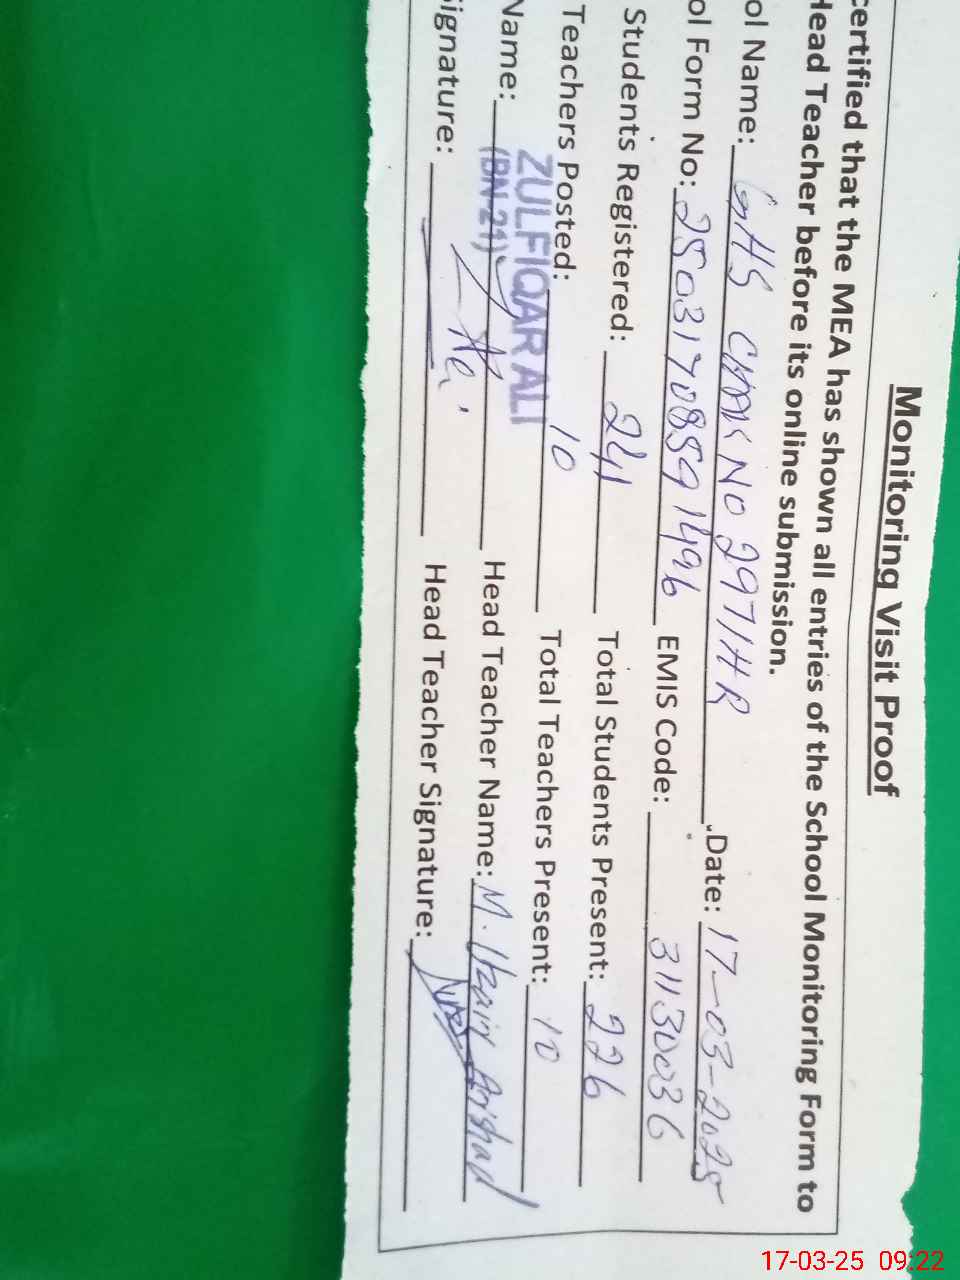 Monitoring Visit Proof
certified that the MEA has shown all entries of the School Monitoring Form to
Head Teacher before its online submission.
ol Name: GHS CHAK NO 297/HR Date: 17-03-2025
ol Form No: 250317088591496 EMIS Code: 31130036
Students Registered: 241 Total Students Present: 226
Teachers Posted: 10 Total Teachers Present: 10
ZULFIQAR ALI
Name: (BN-21) Head Teacher Name: M. Uzair Arshad
ignature: Head Teacher Signature:
17-03-25 09:22